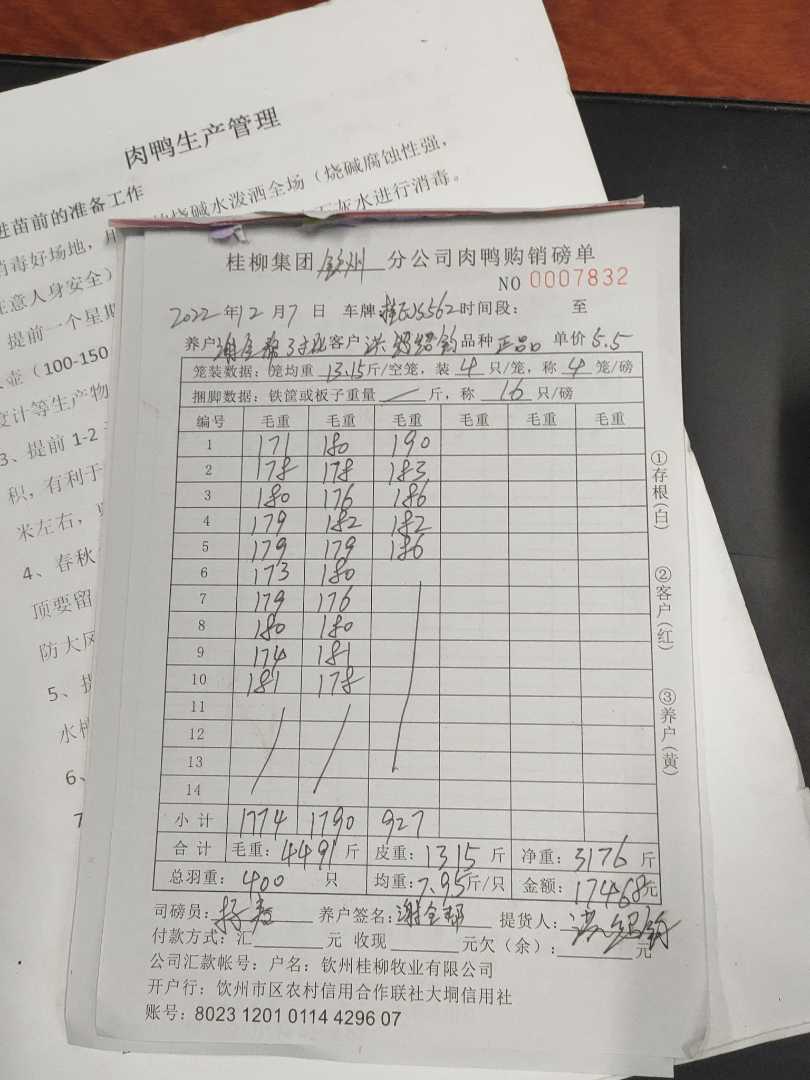 肉鸭生产管理
进苗前的准备工作
烧碱水泼洒全场（烧碱腐蚀性强，
消毒好场地，
灰水进行消毒。
注意人身安全）
提前一个星期
壶（100-150
度计等生产物
3、提前 1-2
积，有利于
米左右，
4、春秋
顶要留
防大风
5、
水
6、
7
桂柳集团 钦州 分公司肉鸭购销磅单
NO 0007832
2022年12月7日 车牌: 时间段: 至
养户 谢全帮 客户 品种 正品 单价 5.5
笼装数据：笼均重 13.15 斤/空笼，装 4 只/笼，称 4 笼/磅
捆脚数据：铁筐或板子重量 — 斤，称 16 只/磅
编号 毛重 毛重 毛重 毛重 毛重 毛重
1 171 180 190
2 178 178 183
3 180 176 186
4 179 182 182
5 179 179 186
6 173 180
7 179 176
8 180 180
9 174 181
10 181 178
11
12
13
14
小 计 1774 1790 927
合 计 毛重: 4491 斤 皮重: 1315 斤 净重: 3176 斤
总羽重: 400 只 均重: 7.95 斤/只 金额: 17468 元
司磅员: 养户签名: 谢全帮 提货人:
付款方式: 汇 元 收现 元欠（余）: 元
公司汇款帐号：户名：钦州桂柳牧业有限公司
开户行：钦州市区农村信用合作联社大垌信用社
账号：8023 1201 0114 4296 07
①存根（白）
②客户（红）
③养户（黄）